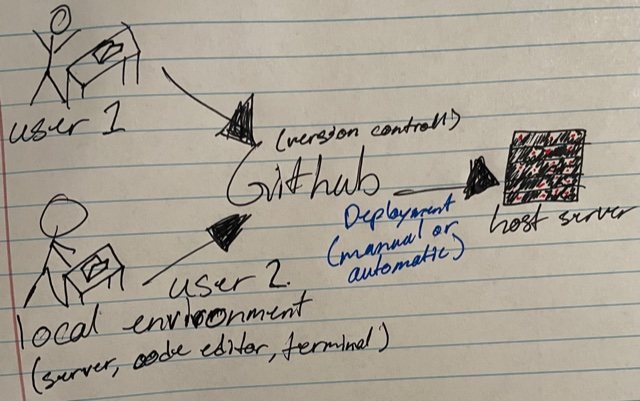 user 1
(version controll)
Github
Deployment
(manual or
automatic)
host server
user 2.
local environment
(server, code editor, terminal)